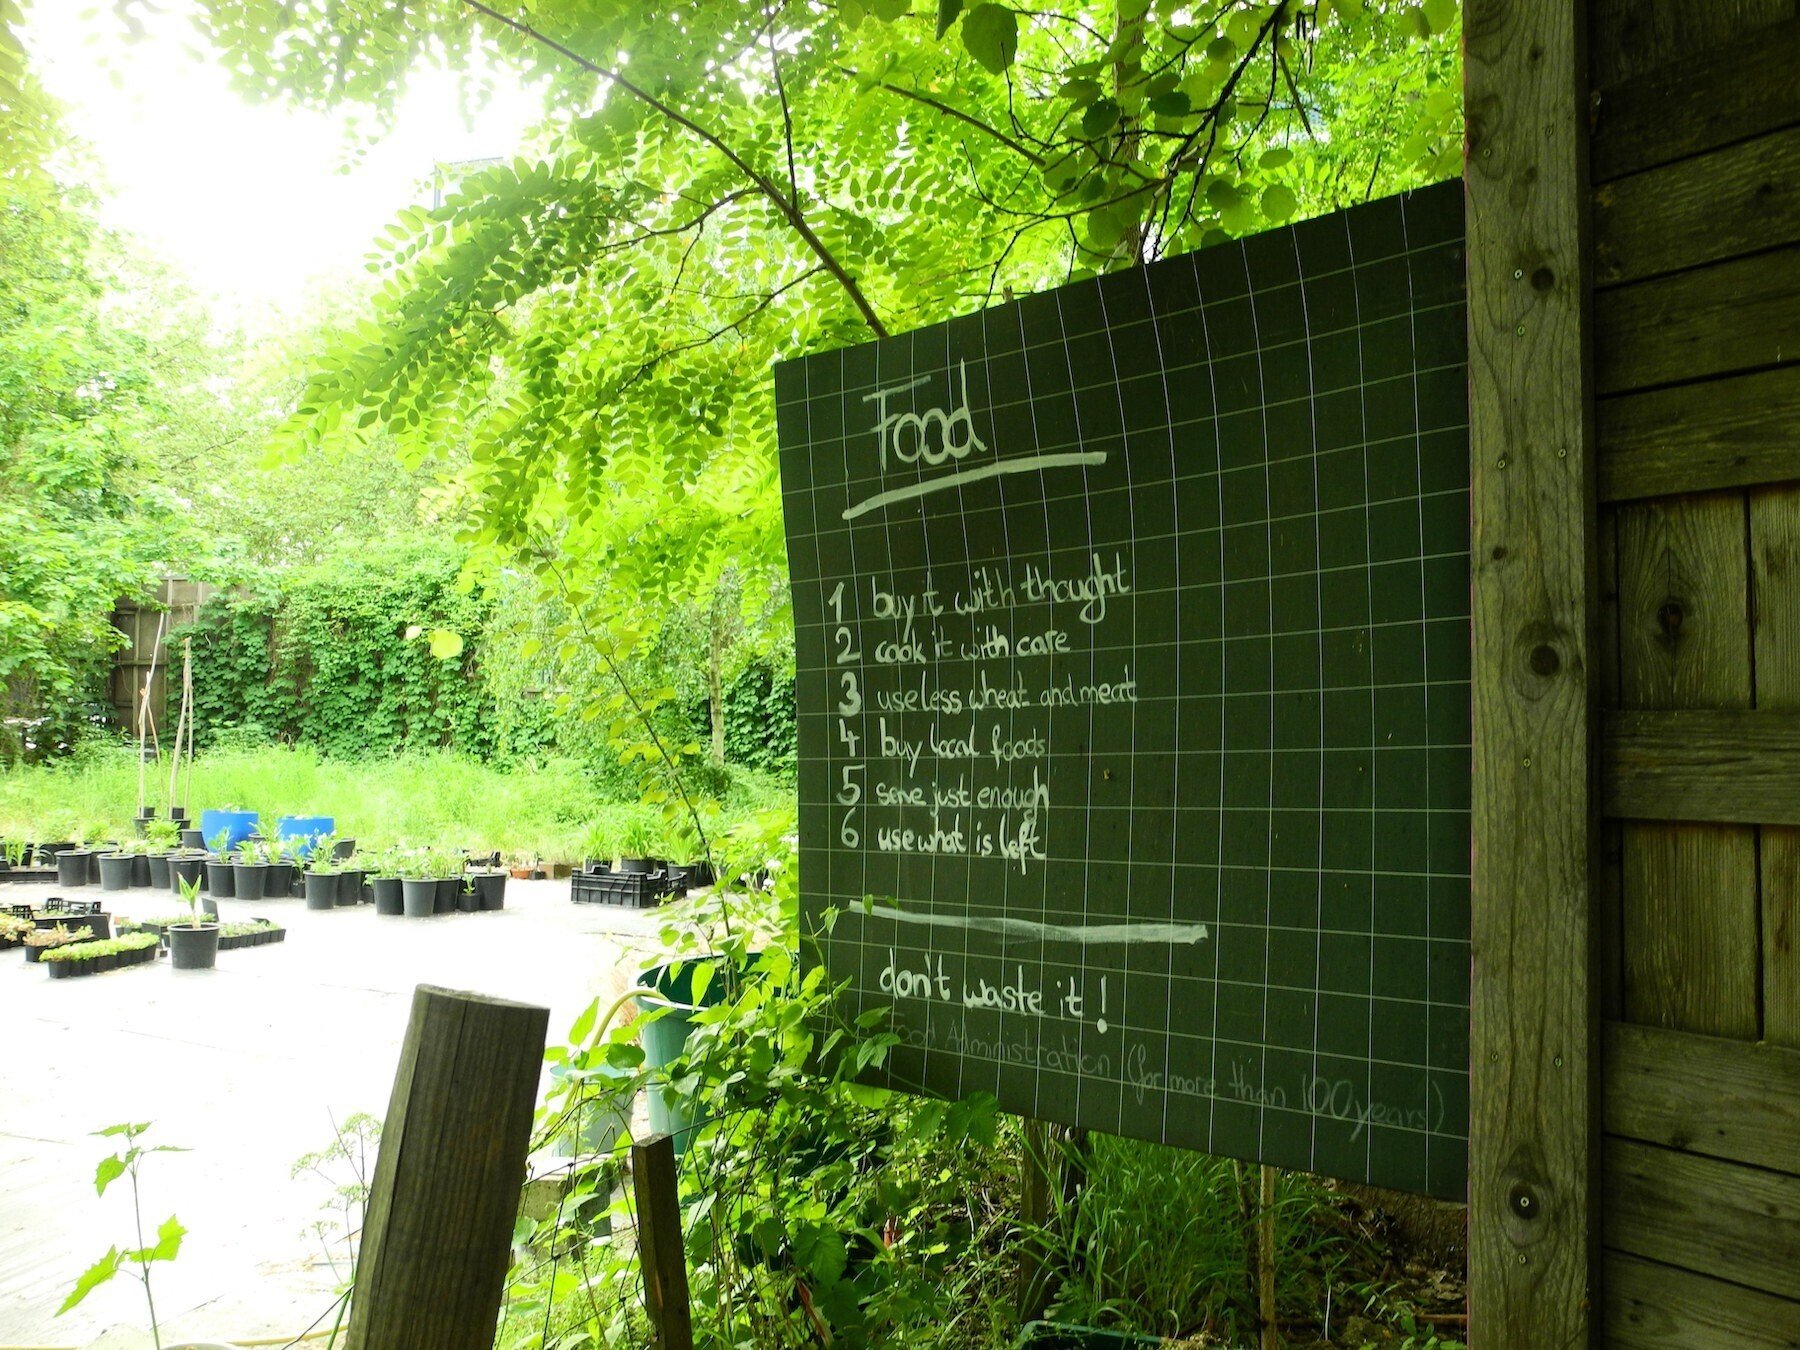 Food
1 buy it with thought
2 cook it with care
3 use less wheat and meat
4 buy local foods
5 serve just enough
6 use what is left
don't waste it!
Food Administration (for more than 100 years)